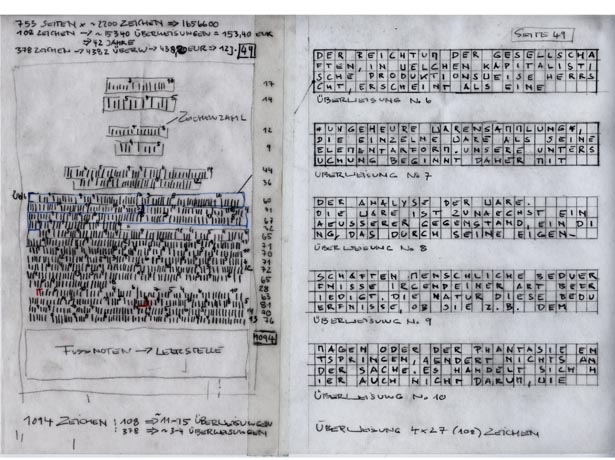 753 SEITEN x ~2200 ZEICHEN => 1656600
108 ZEICHEN -> ~ 15340 ÜBERWEISUNGEN = 153,40 EUR
=> 42 JAHRE
378 ZEICHEN -> 4382 ÜBERW -> EUR => 12J.
49
17
19
ZEICHENZAHL
12
9
44
36
60
71
67
65
71
70
71
72
65
28
63
81
70
76
1094
FUSSNOTEN -> LEERSTELLE
1094 ZEICHEN : 108 => ~11-15 ÜBERWEISUNGEN
: 378 => ~3-4 ÜBERWEISUNGEN
SEITE 49
DER REICHTUM DER GESELLSCHA
FTEN, IN WELCHEN KAPITALISTI
SCHE PRODUKTIONSWEISE HERRS
CHT, ERSCHEINT ALS EINE
ÜBERWEISUNG No 6
"UNGEHEURE WARENSAMMLUNG",
DIE EINZELNE WARE ALS SEINE
ELEMENTARFORM. UNSERE UNTERS
UCHUNG BEGINNT DAHER MIT
ÜBERWEISUNG No 7
DER ANALYSE DER WARE.
DIE WARE IST ZUNAECHST EIN
AEUSSERER GEGENSTAND, EIN DI
NG, DAS DURCH SEINE EIGEN-
ÜBERWEISUNG No 8
SCHAFTEN MENSCHLICHE BEDUER
FNISSE IRGENDEINER ART BEFR
IEDIGT. DIE NATUR DIESE BEDU
ERFNISSE, OB SIE Z.B. DEM
ÜBERWEISUNG No 9
MAGEN ODER DER PHANTASIE EN
TSPRINGEN, AENDERT NICHTS AN
DER SACHE. ES HANDELT SICH H
IER AUCH NICHT DARUM, WIE
ÜBERWEISUNG No 10
ÜBERWEISUNG 4x27 (108) ZEICHEN